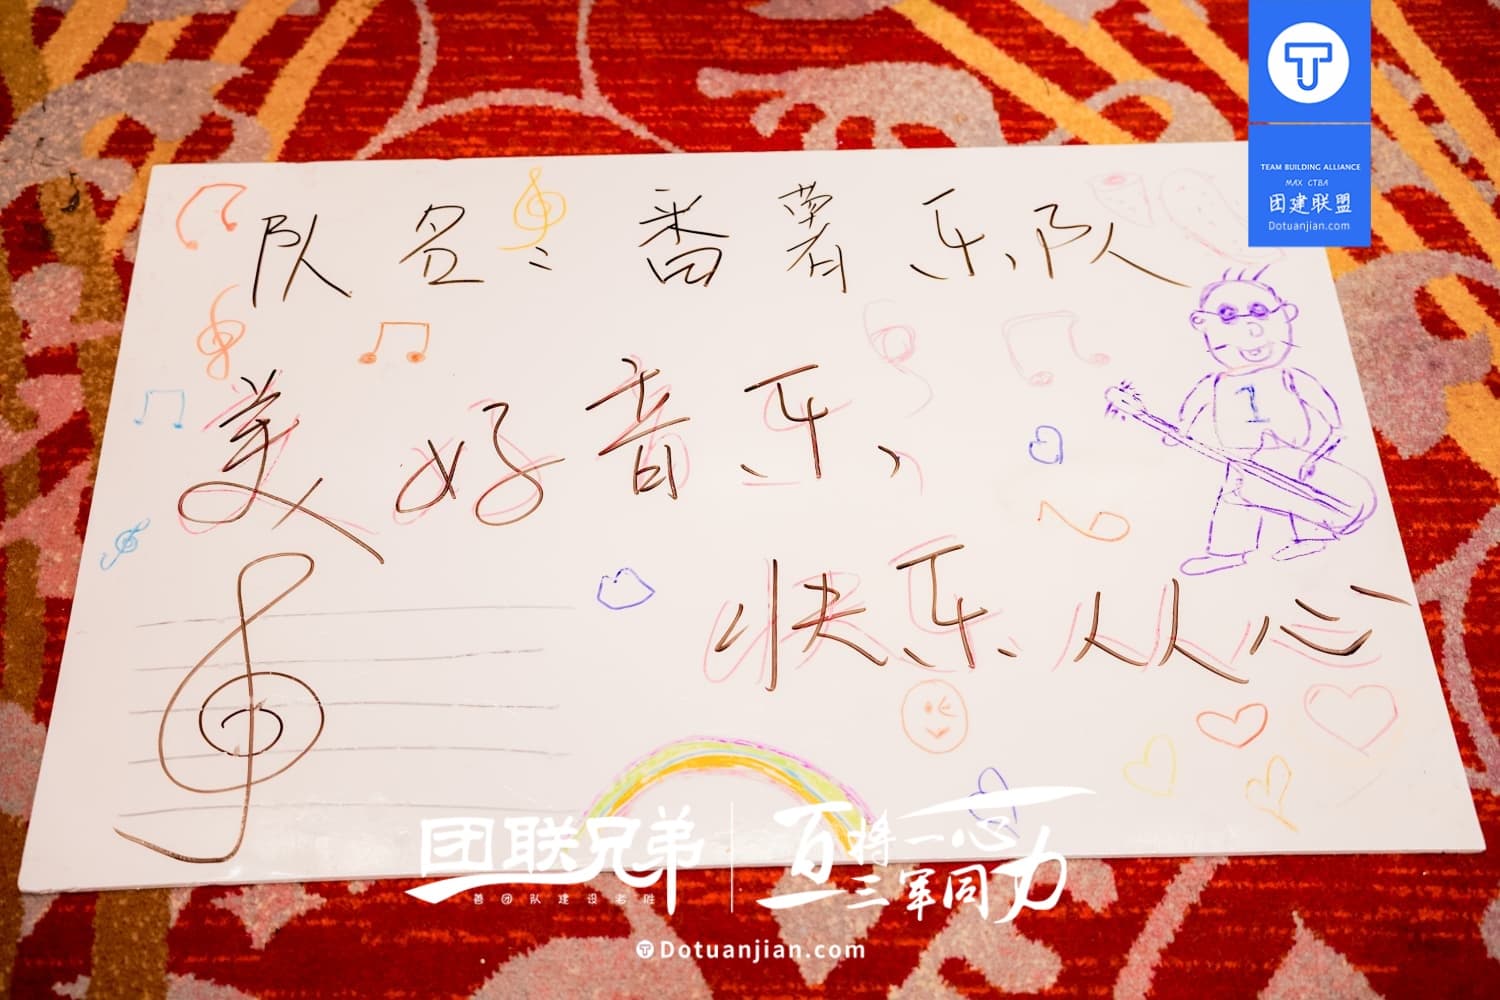 TEAM BUILDING ALLIANCE
MAX CTBA
团建联盟
Dotuanjian.com
队名：番薯乐队
美好音乐，
1
快乐从心
团联兄弟
百将一心
三军同力
善团队建设者胜
Dotuanjian.com